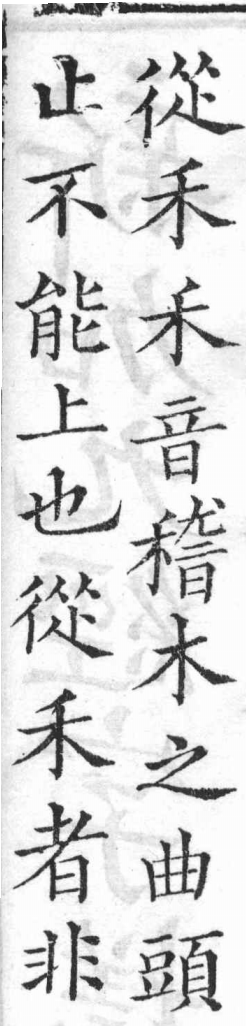 從𥝌𥝌音稽木之曲頭
止不能上也從禾者非